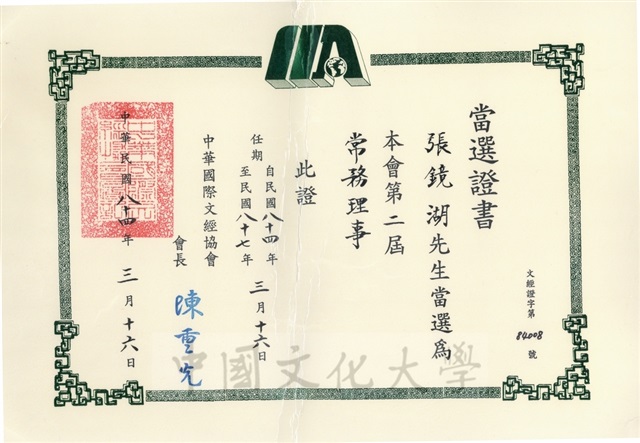 當選證書
文經證字第 84008 號
張鏡湖先生當選為
本會第二屆
常務理事
此證
任期 自民國八十四年三月十六日
至民國八十七年
中華國際文經協會
會長 陳重光
中華民國八十四年三月十六日
中國文化大學